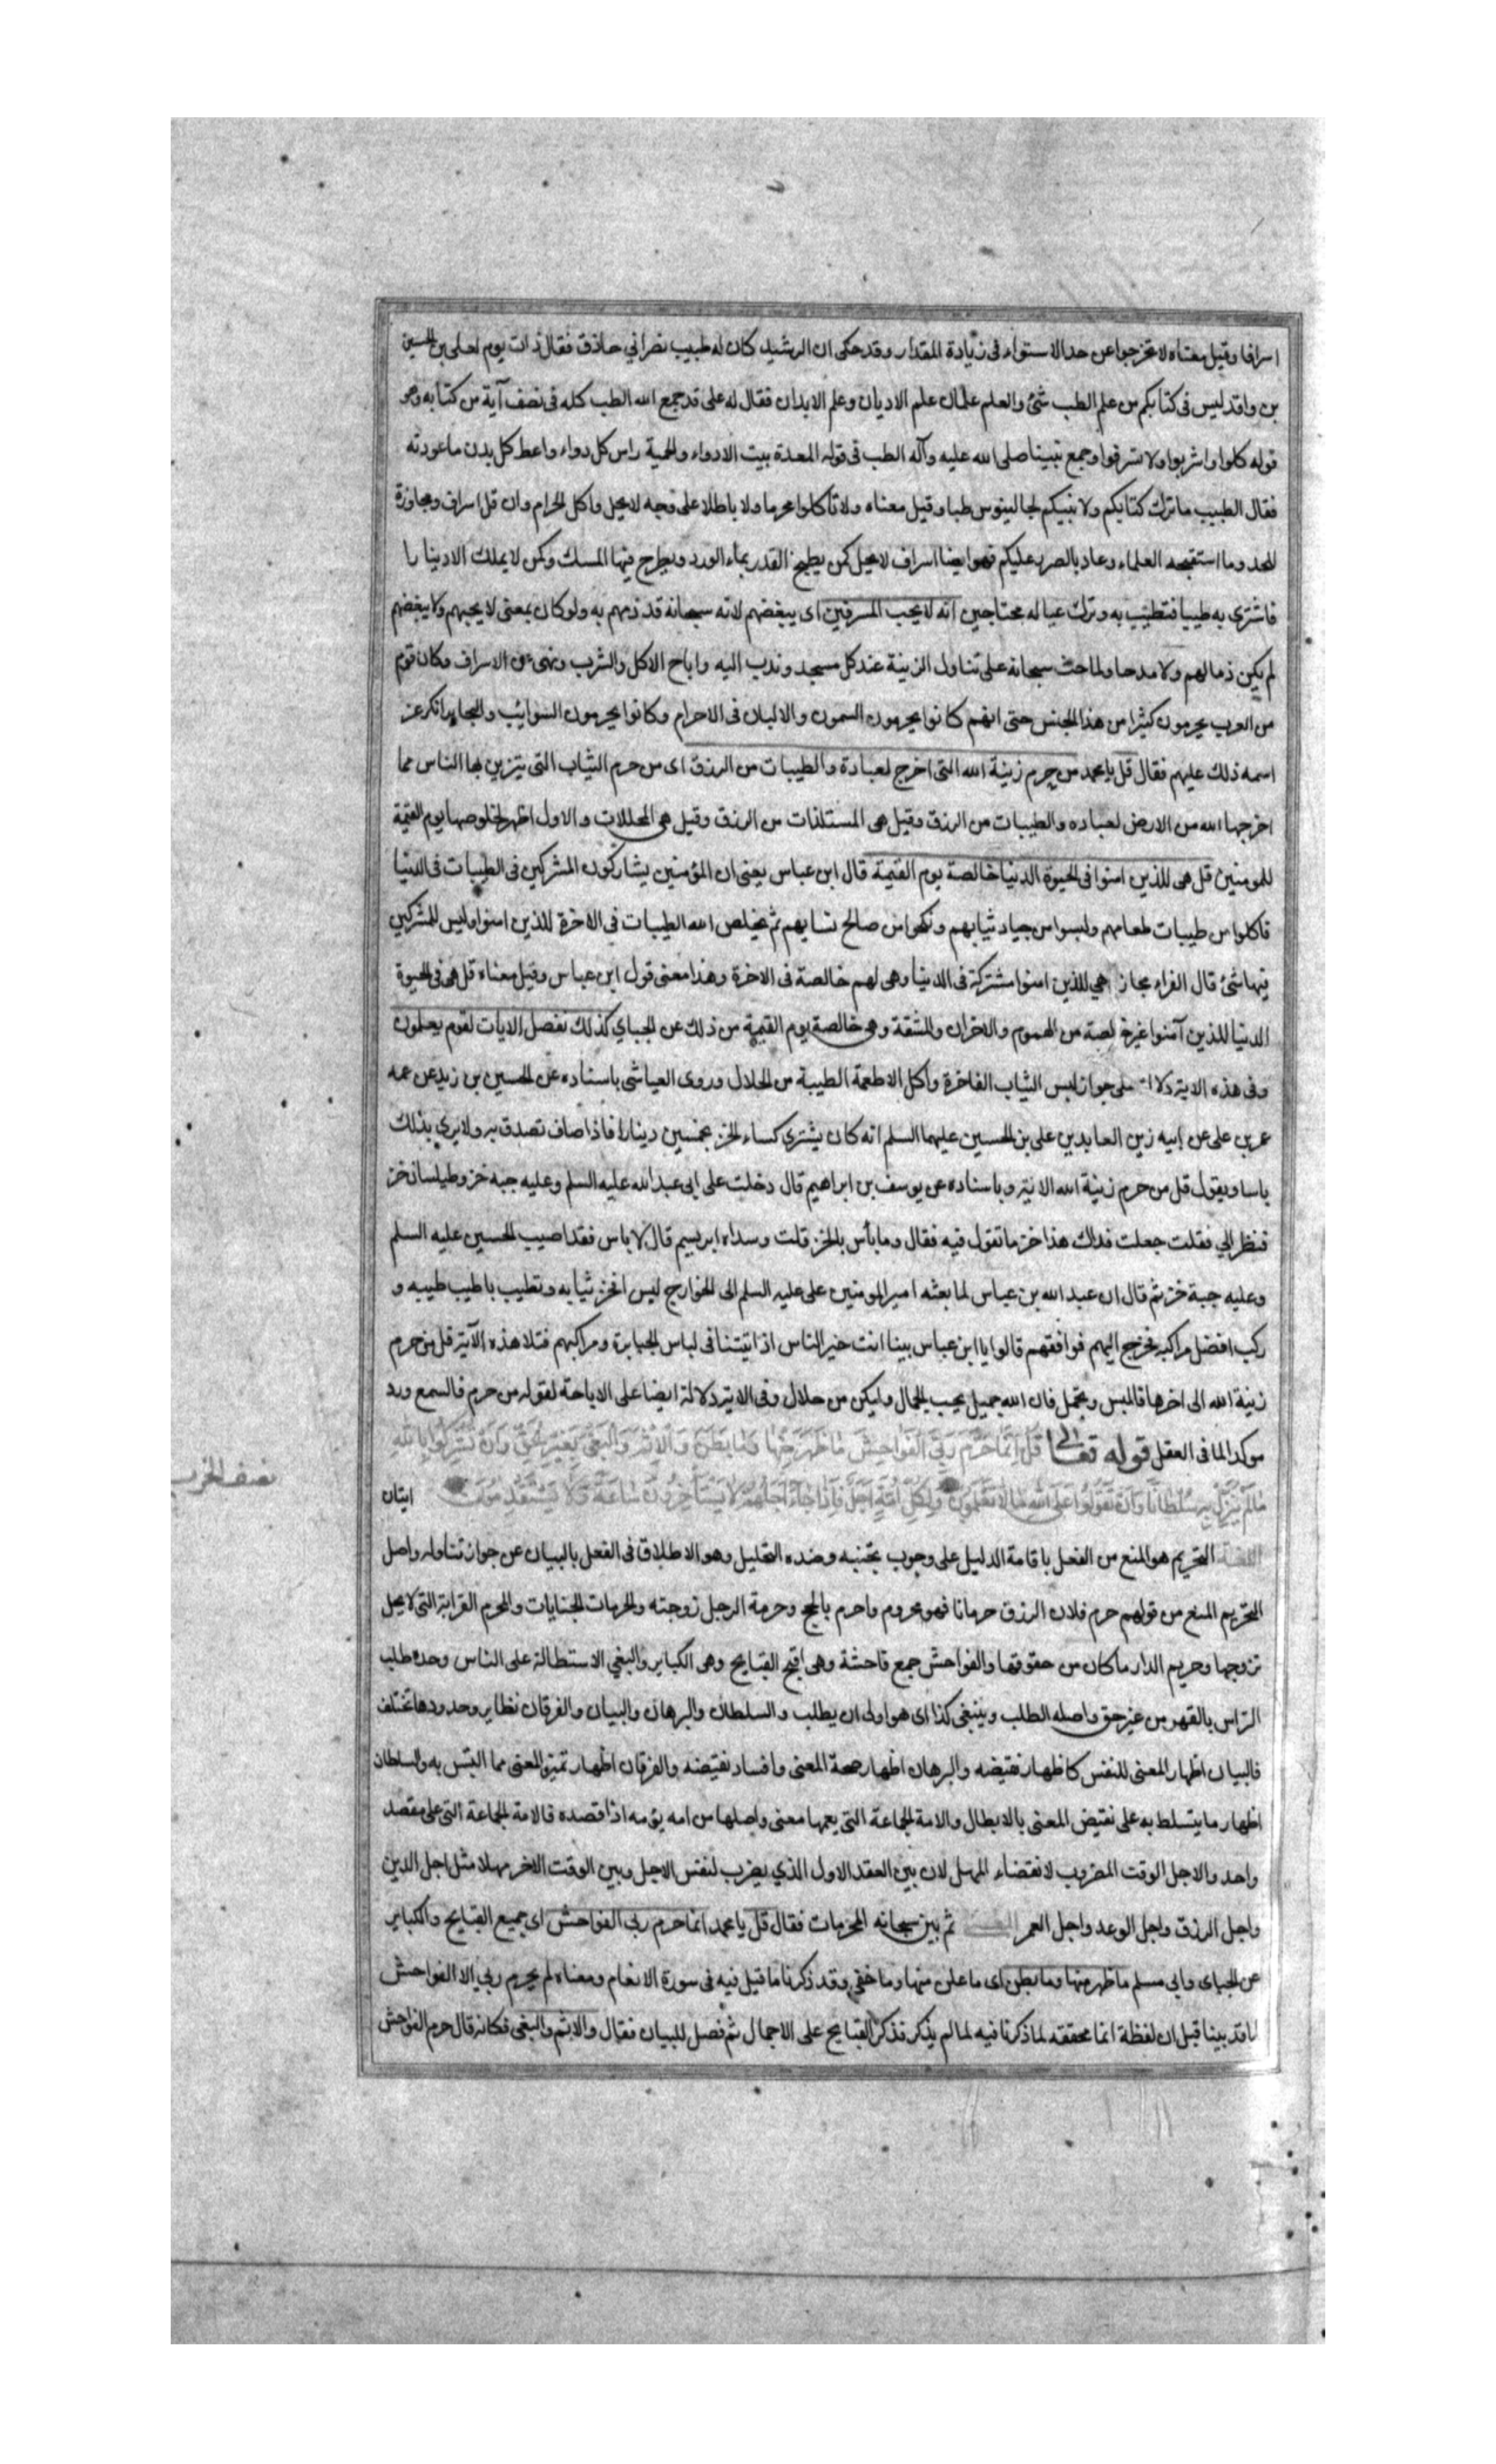 اسرافا وقيل معناه لا تخرجوا عن حد الاستواء فى زيادة المقدار وقد حكى ان الرشيد كان له طبيب نصراني حاذق فقال ذات يوم لعلى بن الحسين
بن واقد ليس فى كتابكم من علم الطب شئ والعلم علمان علم الاديان وعلم الابدان فقال له على قد جمع الله الطب كله فى نصف آية من كتابه وهو
قوله كلوا واشربوا ولا تسرفوا وجمع نبينا صلى الله عليه وآله الطب فى قوله المعدة بيت الادواء والحمية راس كل دواء واعط كل بدن ما عودته
فقال الطبيب ما ترك كتابكم ولا نبيكم لجالينوس طبا وقيل معناه ولا تأكلوا محرما ولا باطلا على وجه لا يحل واكل الحرام وان قل اسراف ومجاوزة
للحد وما استقبحه العلماء وعاد بالضرر عليكم فهو ايضا اسراف لا يحل كمن يطبخ القدر بماء الورد ويطرح فيها المسك وكمن لا يملك الا دينارا
فاشترى به طيبا فتطيب به وترك عياله محتاجين انه لا يحب المسرفين اى يبغضهم لانه سبحانه قد ذمهم به ولو كان بمعنى لا يحبهم ولا يبغضهم
لم يكن ذما لهم ولا مدحا ولما حث سبحانه على تناول الزينة عند كل مسجد وندب اليه واباح الاكل والشرب ونهى عن الاسراف وكان قوم
من العرب يحرمون كثيرا من هذا الجنس حتى انهم كانوا يحرمون السمون والالبان فى الاحرام وكانوا يحرمون السوايب والبحاير انكر عز
اسمه ذلك عليهم فقال قل يا محمد من حرم زينة الله التى اخرج لعباده والطيبات من الرزق اى من حرم الثياب التى تتزين بها الناس مما
اخرجها الله من الارض لعباده والطيبات من الرزق وقيل هى المستلذات من الرزق وقيل هى المحللات والاول اظهر لخلوصها يوم القيمة
للمومنين قل هى للذين امنوا فى الحيوة الدنيا خالصة يوم القيمة قال ابن عباس يعنى ان المؤمنين يشاركون المشركين فى الطيبات فى الدنيا
فاكلوا من طيبات طعامهم ولبسوا من جياد ثيابهم ونكحوا من صالح نسايهم ثم يخلص الله الطيبات فى الاخرة للذين امنوا وليس للمشركين
فيها شئ قال الفراء مجاز هي للذين امنوا مشتركة فى الدنيا وهى لهم خالصة فى الاخرة وهذا معنى قول ابن عباس وقيل معناه قل هى فى الحيوة
الدنيا للذين آمنوا غير خالصة من الهموم والاحزان والمشقة وهى خالصة يوم القيمة من ذلك عن الجباي كذلك نفصل الايات لقوم يعلمون
وفى هذه الاية دلالة على جواز لبس الثياب الفاخرة واكل الاطعمة الطيبة من الحلال وروى العياشى باسناده عن الحسين بن زيد عن عمه
عمر بن على عن ابيه زين العابدين على بن الحسين عليهما السلم انه كان يشتري كساء الخز بخمسين دينارا فاذا صاف تصدق به ولا يري بذلك
باسا ويقول قل من حرم زينة الله الاية وباسناده عن يوسف بن ابراهيم قال دخلت على ابى عبد الله عليه السلم وعليه جبة خز وطيلسان خز
فنظر الي فقلت جعلت فداك هذا خز ما تقول فيه فقال وما بأس بالخز قلت وسداه ابريسم قال لا باس فقد اصيب الحسين عليه السلم
وعليه جبة خز ثم قال ان عبد الله بن عباس لما بعثه امير المومنين على عليه السلم الى الخوارج لبس افخر ثيابه وتطيب باطيب طيبه و
ركب افضل مراكبه فخرج اليهم فوافقهم قالوا يا ابن عباس بينا انت خير الناس اذ اتيتنا فى لباس الجبابرة ومراكبهم فتلا هذه الآية قل من حرم
زينة الله الى اخرها فالبس وتجمل فان الله جميل يحب الجمال وليكن من حلال وفى الاية دلالة ايضا على الاباحة لقوله من حرم فالسمع ورد
موكدا لما فى العقل قوله تعالى قل انما حرم ربي الفواحش ما ظهر منها وما بطن والاثم والبغي بغير الحق وان تشركوا بالله
ما لم ينزل به سلطانا وان تقولوا على الله ما لا تعلمون ولكل امة اجل فاذا جاء اجلهم لا يستأخرون ساعة ولا يستقدمون ايتان
اللغة التحريم هو المنع من الفعل باقامة الدليل على وجوب تجنبه وضده التحليل وهو الاطلاق فى الفعل بالبيان عن جواز تناوله واصل
التحريم المنع من قولهم حرم فلان الرزق حرمانا فهو محروم واحرم بالحج وحرمة الرجل زوجته والحرمات الجنايات والمحرم القرابة التى لا يحل
تزوجها وحريم الدار ما كان من حقوقها والفواحش جمع فاحشة وهى اقبح القبايح وهى الكباير والبغي الاستطالة على الناس وحده طلب
التراس بالقهر من غير حق واصله الطلب وينبغى كذا اى هو اولى ان يطلب والسلطان والبرهان والبيان والفرقان نظاير وحدودها تختلف
فالبيان اظهار المعنى للنفس كاظهار نقيضه والبرهان اظهار صحة المعنى وافساد نقيضه والفرقان اظهار تميز المعنى مما التبس به والسلطان
اظهار ما يتسلط به على نقيض المعنى بالابطال والامة الجماعة التى يعمها معنى واصلها من امه يؤمه اذا قصده فالامة الجماعة التى على مقصد
واحد والاجل الوقت المضروب لانقضاء المهل لان بين العقد الاول الذي يضرب لنفس الاجل وبين الوقت الاخر مهلا مثل اجل الدين
واجل الرزق واجل الوعد واجل العمر المعنى ثم بين سبحانه المحرمات فقال قل يا محمد انما حرم ربى الفواحش اى جميع القبايح والكباير
عن الجباى وابي مسلم ما ظهر منها وما بطن اى ما علن منها وما خفي وقد ذكرنا ما قيل فيه فى سورة الانعام ومعناه لم يحرم ربي الا الفواحش
لما قد بينا قبل ان لفظة انما محققة لما ذكرنا فيه لما لم يذكر فذكر القبايح على الاجمال ثم فصل للبيان فقال والاثم والبغى فكانه قال حرم الفواحش
نصف الحزب